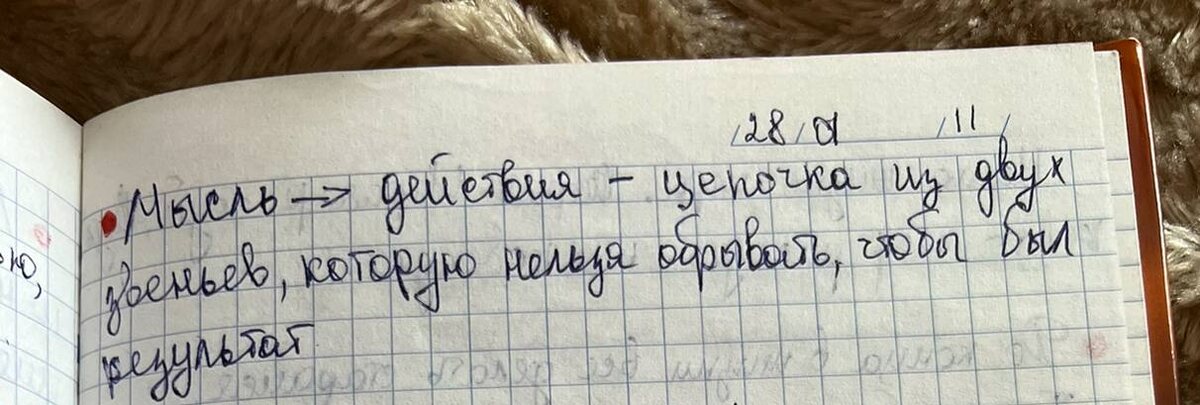 28 11
• Мысль → действия – цепочка из двух
звеньев, которую нельзя обрывать, чтобы был
результат